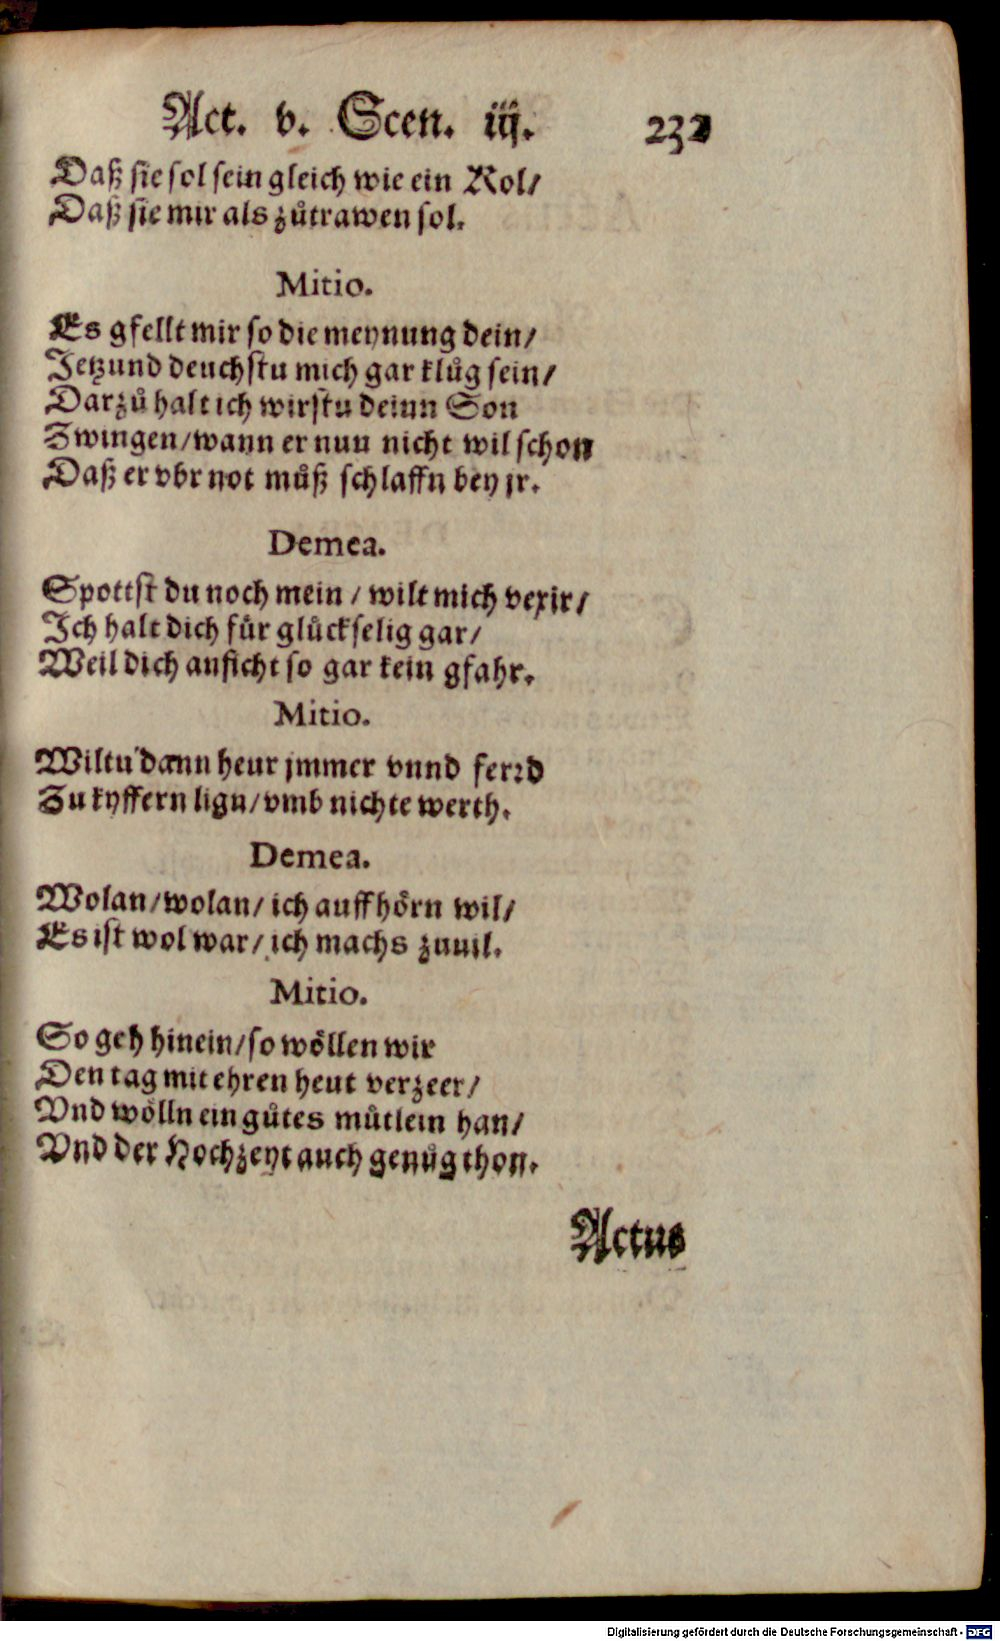 Act. v. Scen. iij. 232
Daß sie sol sein gleich wie ein Kol/
Daß sie mir als zůtrawen sol.
Mitio.
Es gfellt mir so die meynung dein/
Jetzund deuchstu mich gar klůg sein/
Darzů halt ich wirstu deinn Son
Zwingen/wann er nun nicht wil schon
Daß er vbr not můß schlaffn bey jr.
Demea.
Spottst du noch mein / wilt mich vexir/
Ich halt dich für glückselig gar/
Weil dich anficht so gar kein gfahr.
Mitio.
Wiltu dann heur jmmer vnnd ferrd
Zu kyffern lign/vmb nichte werth.
Demea.
Wolan/wolan/ ich auffhörn wil/
Es ist wol war/ ich machs zuuil.
Mitio.
So geh hinein/so wöllen wir
Den tag mit ehren heut verzeer/
Vnd wölln ein gůtes můtlein han/
Vnd der Hochzeyt auch genůg thon.
Actus
Digitalisierung gefördert durch die Deutsche Forschungsgemeinschaft - DFG